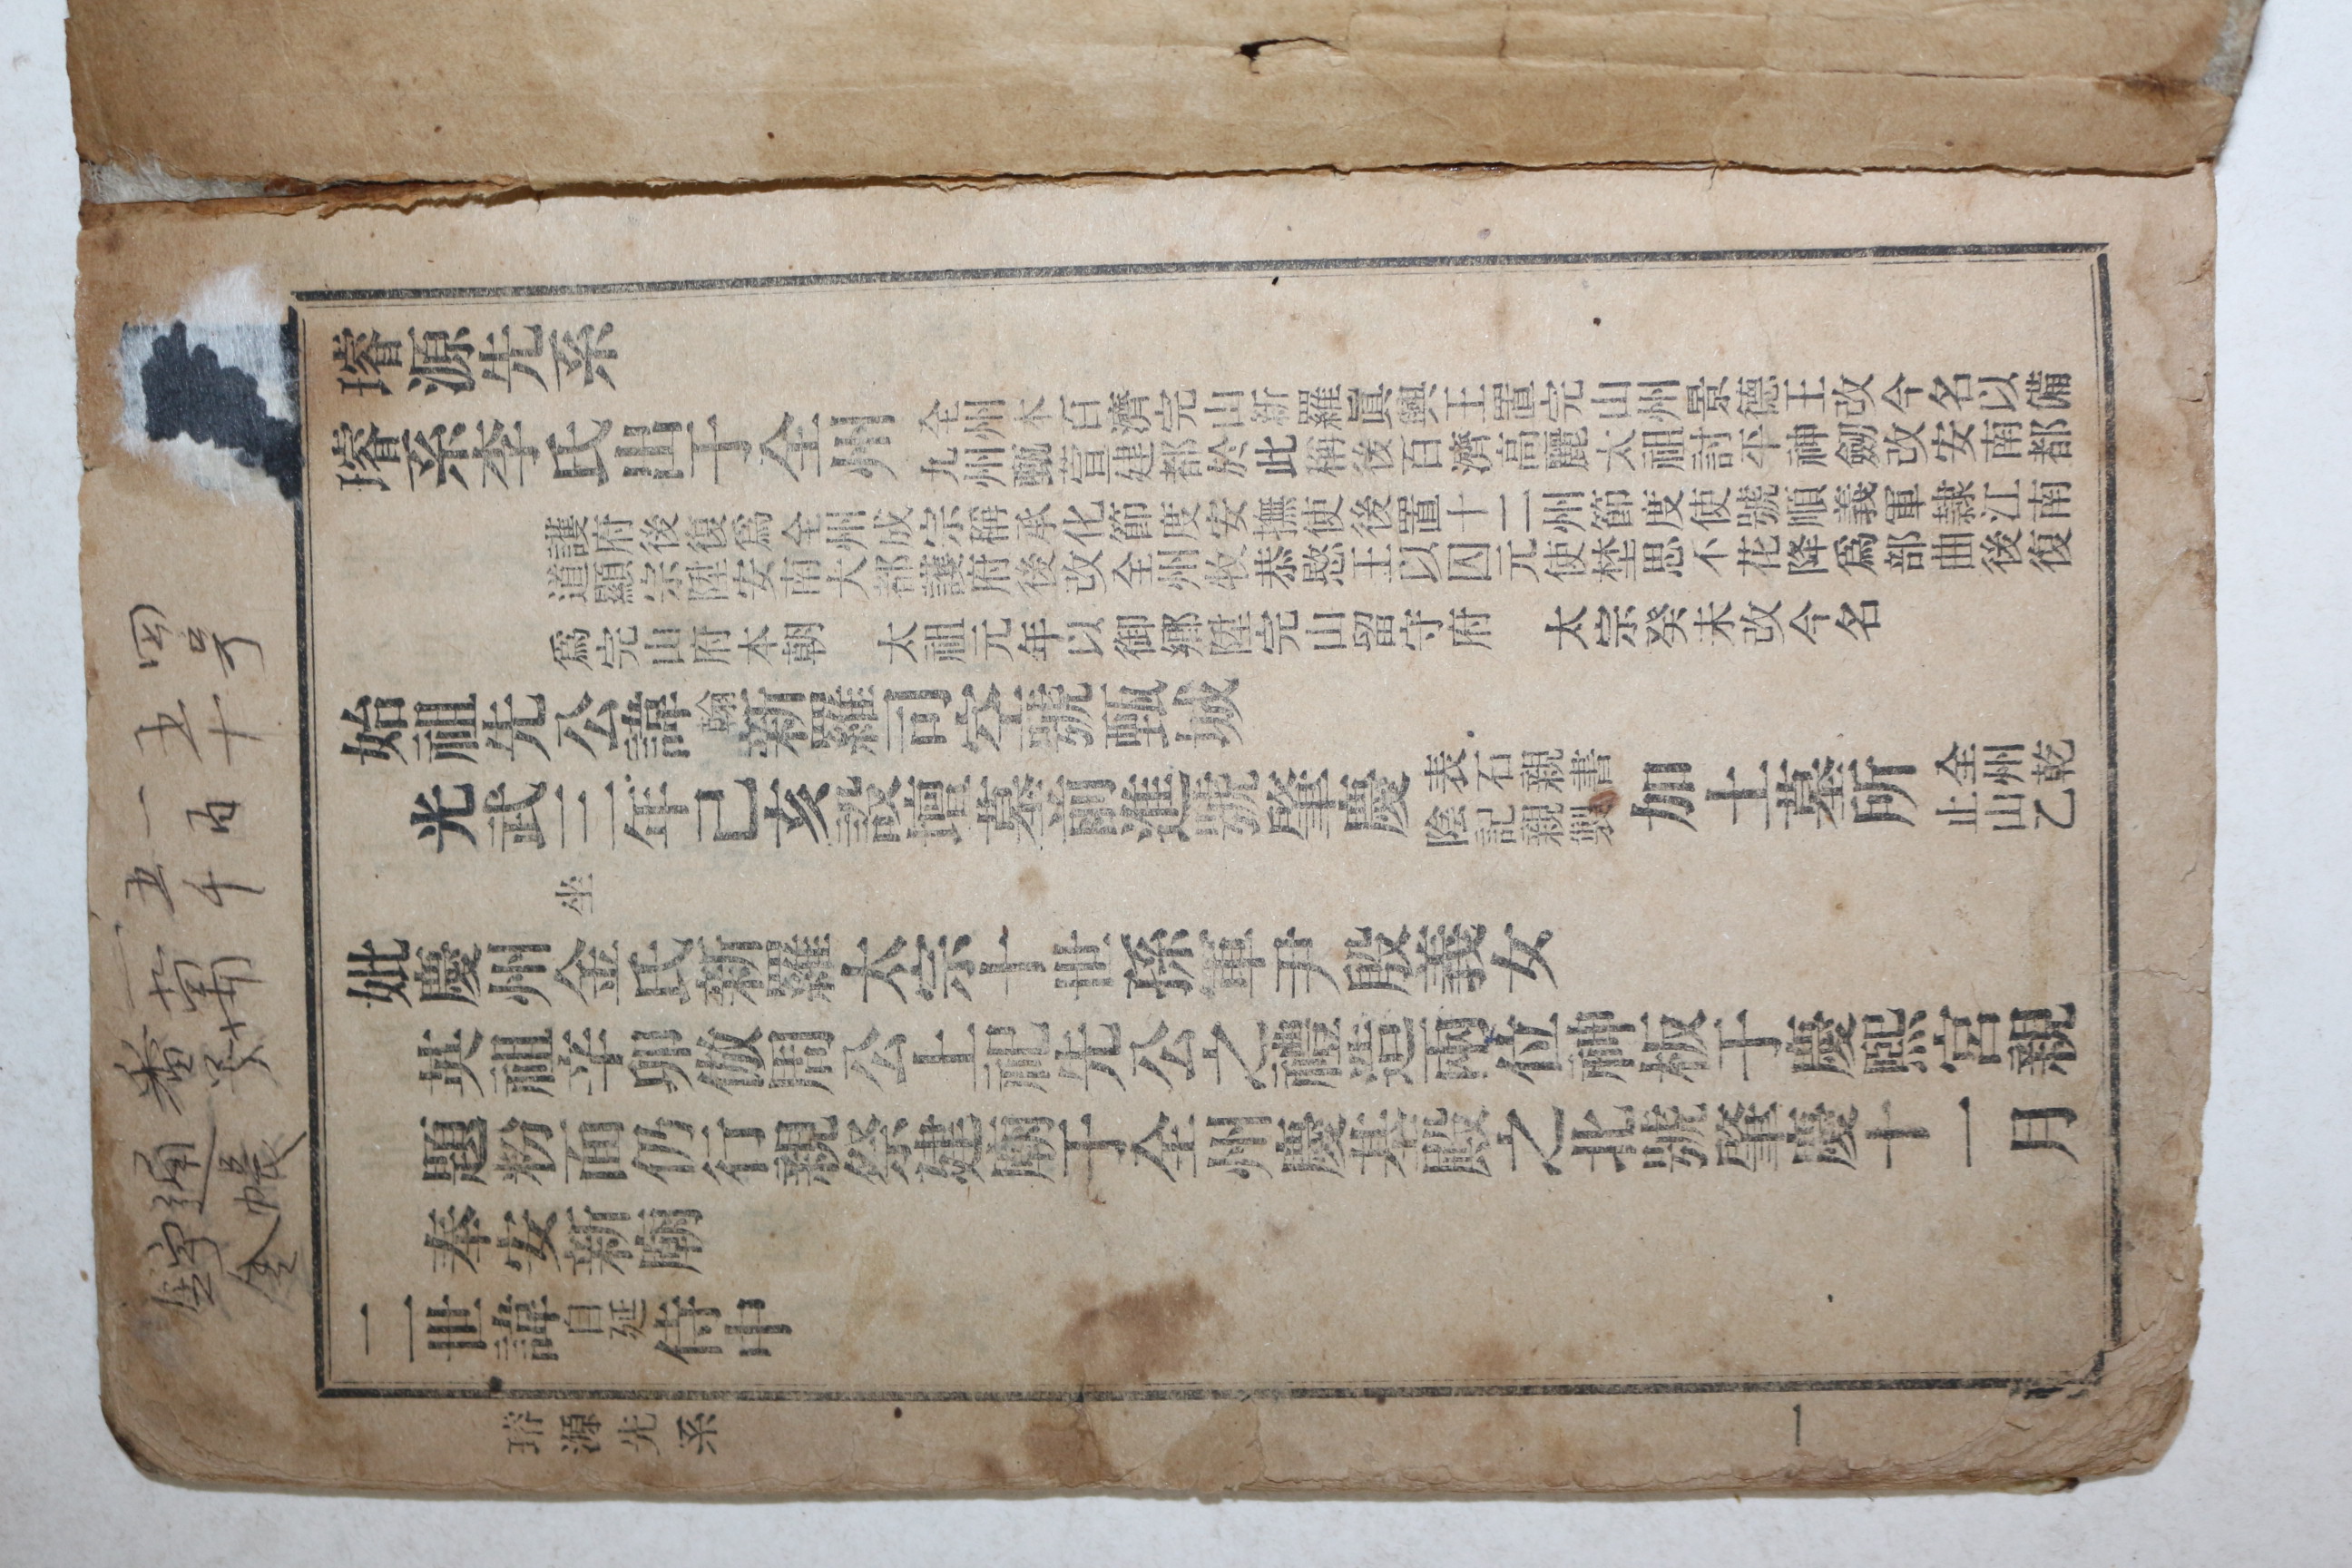 璿源先系
璿系李氏出于全州
全州本百濟完山新羅眞興王置完山州景德王改今名以備
九州甄萱建都於此稱後百濟高麗太祖討平神劒改安南都
護府後復爲全州成宗稱承化節度安撫使後置十二州節度使號順義軍隷江南
道顯宗陞安南大都護府後改全州牧恭愍王以囚元使埜思不花降爲部曲後復
爲完山府本朝 太祖元年以御鄕陞完山留守府 太宗癸未改今名
始祖先公諱翰新羅司空號甄城
光武三年己亥設壇墓前進號肇慶 表石親書 陰記親製 加土墓所 全州乾 止山乙
坐
妣慶州金氏新羅太宗十世孫軍尹殷義女
英祖辛卯倣周公上祀先公之禮造兩位神板于慶熙宮親
題粉面仍行親祭建廟于全州慶基殿之北號肇慶十一月
奉安新廟
二世諱自延侍中
璿源先系 一